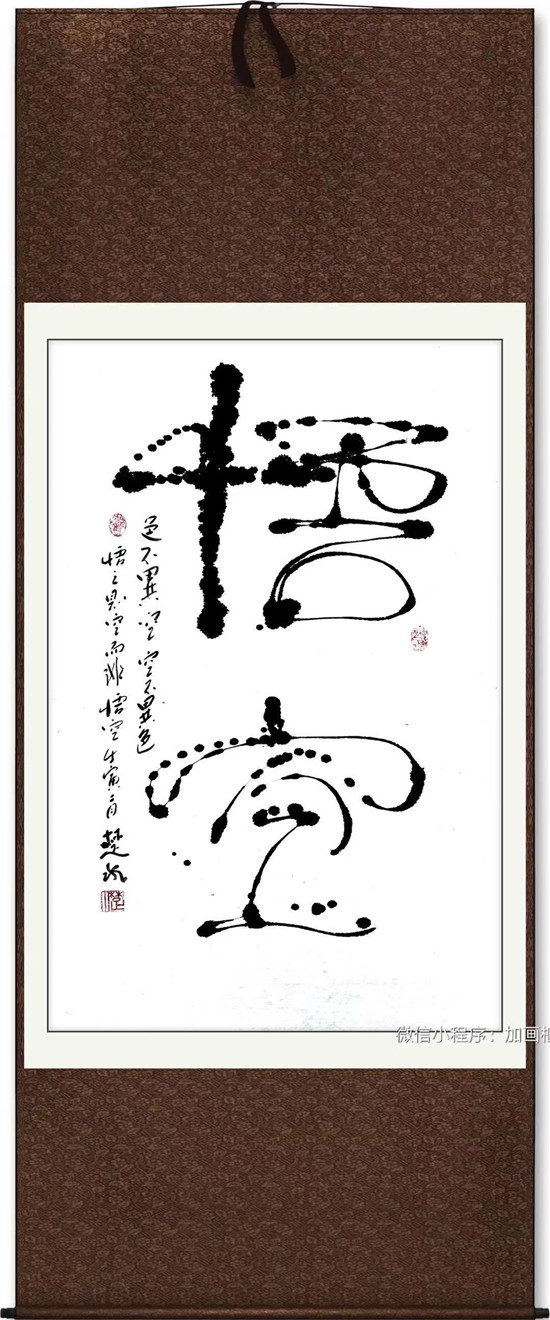 悟空
色不異空 空不異色
悟之 空而非悟空 壬寅 月 楚
微信小程序：加画框